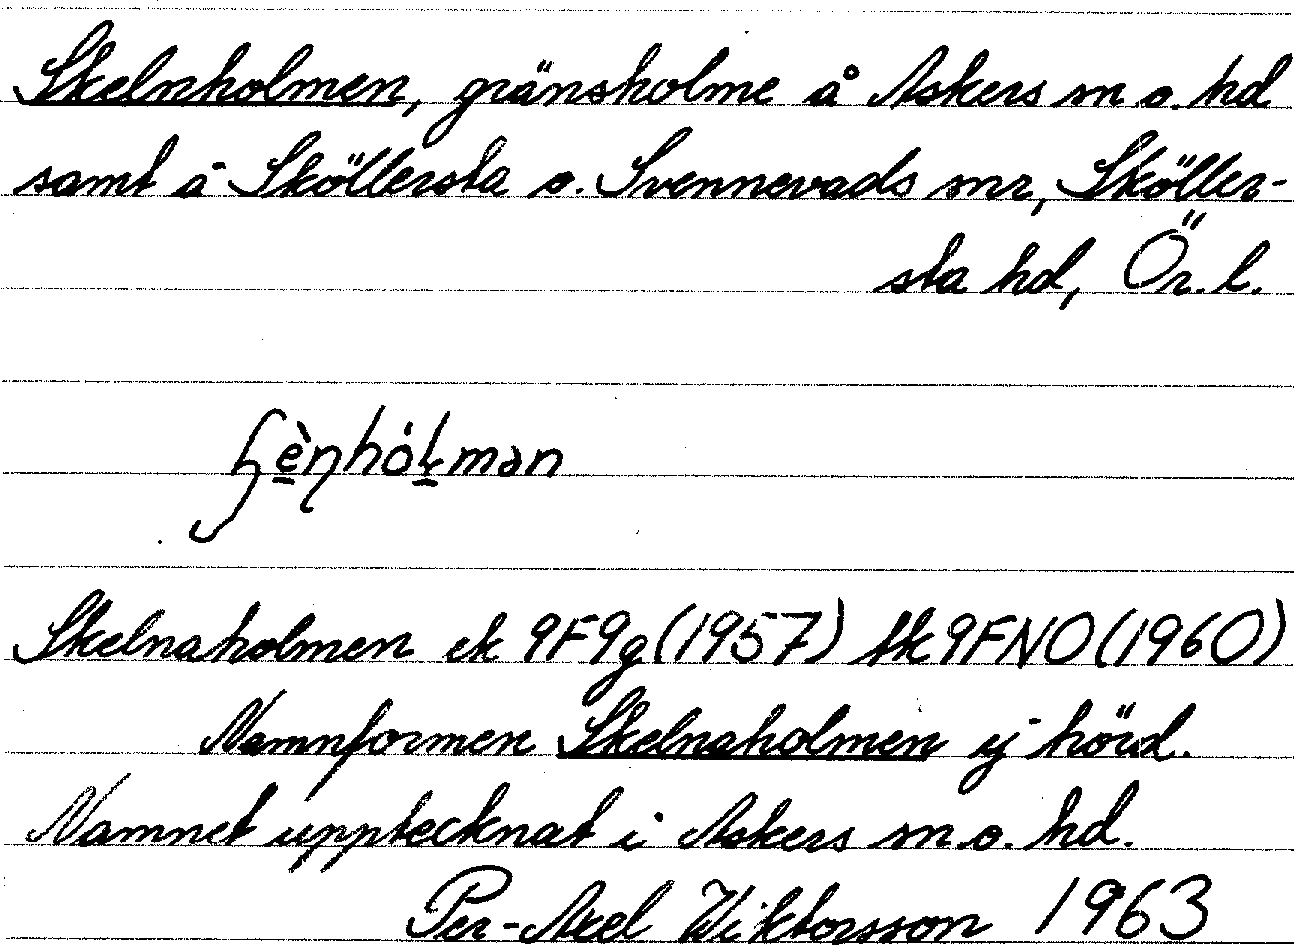 Skelnholmen, gränsholme å Askers sn o. hd
samt å Sköllersta o. Svennevads snr, Sköller-
sta hd, Ör. l.
Skelnaholmen ek 9F9g (1957) tk 9FNO (1960)
Namnformen Skelnaholmen ej hörd.
Namnet upptecknat i Askers sn o. hd.
Per-Axel Wiktorsson 1963